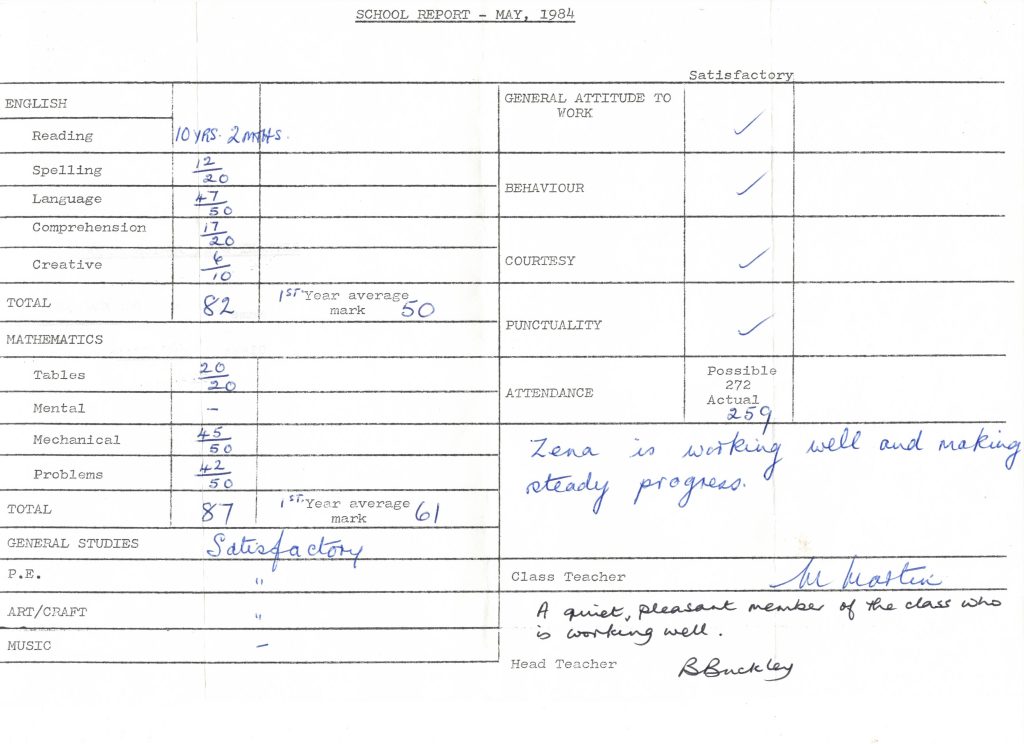 SCHOOL REPORT - MAY, 1984
ENGLISH
Reading 10 YRS. 2 MTHS.
Spelling 12/20
Language 47/50
Comprehension 17/20
Creative 6/10
TOTAL 82 1ST Year average mark 50
MATHEMATICS
Tables 20/20
Mental -
Mechanical 45/50
Problems 42/50
TOTAL 87 1ST Year average mark 61
GENERAL STUDIES Satisfactory
P.E. "
ART/CRAFT "
MUSIC -
Satisfactory
GENERAL ATTITUDE TO WORK ✓
BEHAVIOUR ✓
COURTESY ✓
PUNCTUALITY ✓
ATTENDANCE Possible 272 Actual 259
Zena is working well and making
steady progress.
Class Teacher M Martin
A quiet, pleasant member of the class who
is working well.
Head Teacher B Buckley